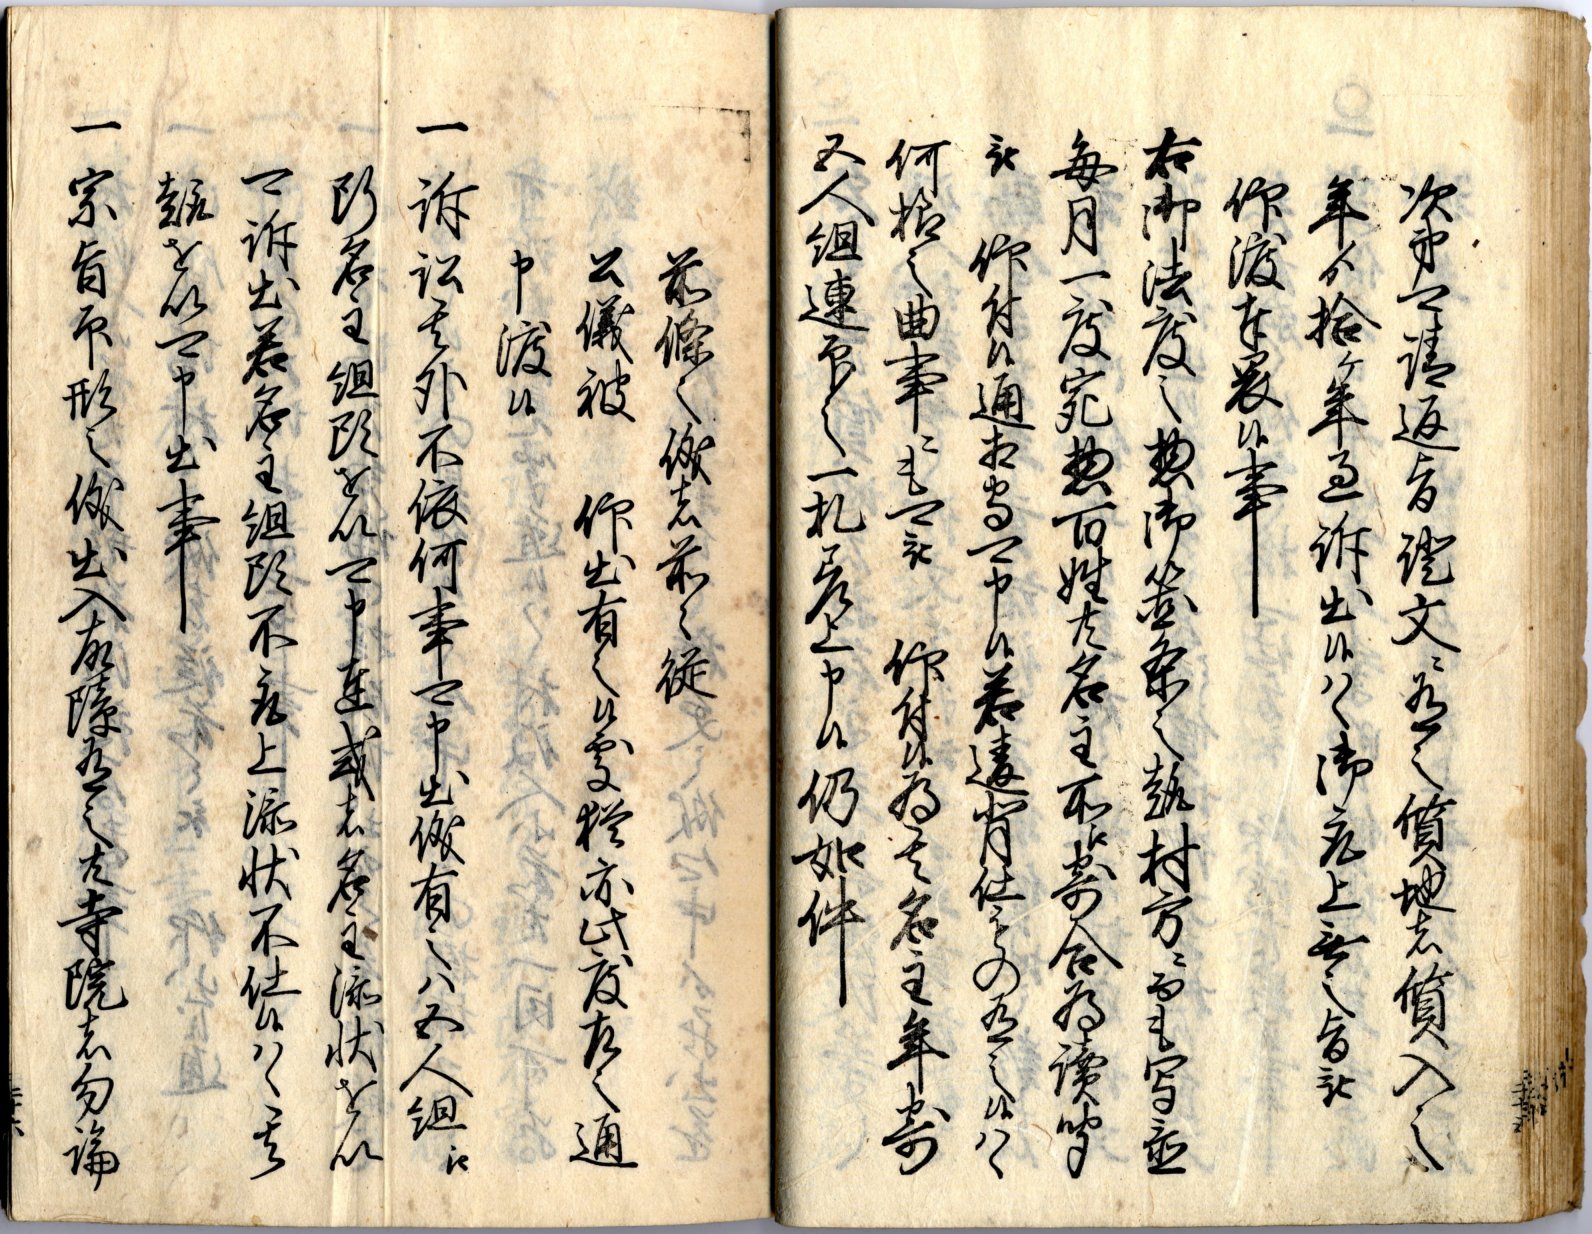 次第可請返旨證文ニ有之質地者質入之
年ゟ拾ヶ年過訴出候ハヽ御取上無之旨被
仰渡奉畏候事
右御法度之惣御箇条之趣村方ニ而も写置
毎月一度宛惣百姓共名主所江寄合為読聞
被 仰付候通相守可申候若違背仕もの有之候ハヽ
何様之曲事ニも可被 仰付候為其名主年寄
五人組連印之一札差上申候仍如件
前條之儀者前々従
公儀被 仰出有之候處猶亦此度左之通
申渡候
一 訴訟其外不依何事可申出儀有之ハ五人組江
断名主組頭を以可申達或者名主添状を以
可訴出若名主組頭不取上添状不仕候ハヽ其
趣を以可申出事
一 宗旨印形之儀出入故障有之共寺院者勿論